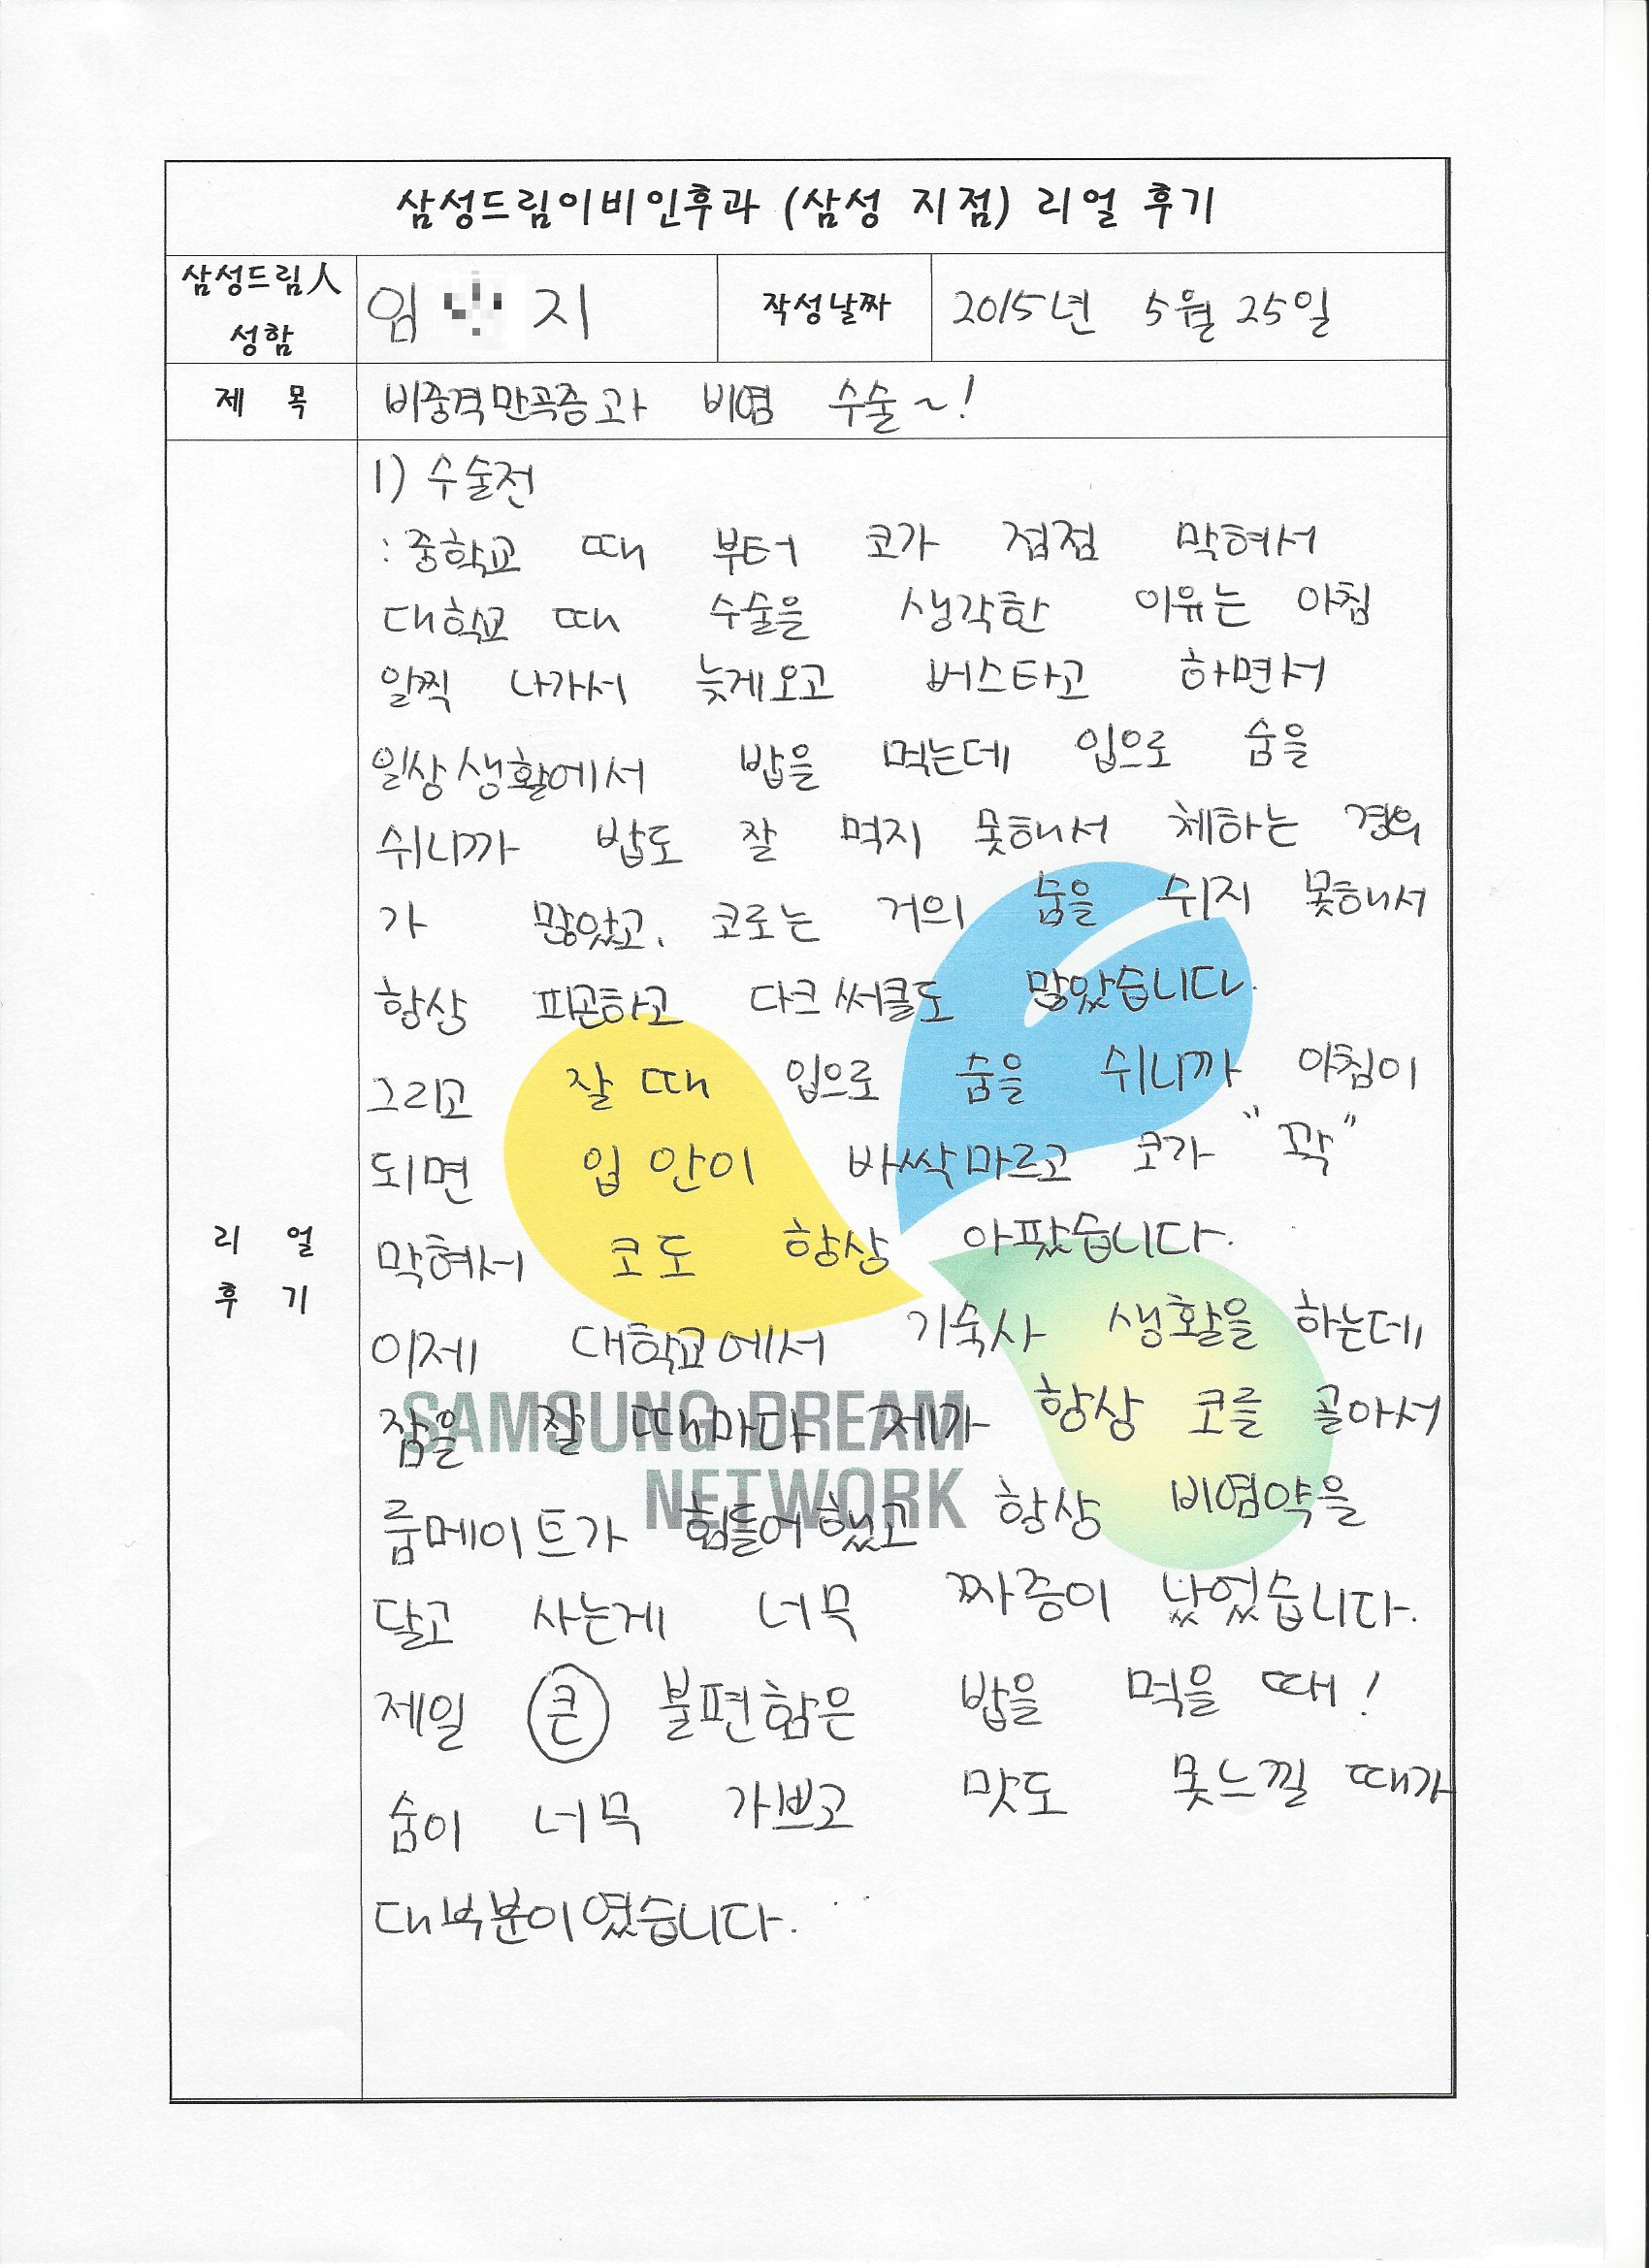 삼성드림이비인후과 (삼성 지점) 리얼 후기
삼성드림人
성함
임 지
작성날짜
2015년 5월 25일
제 목
비중격만곡증과 비염 수술~!
리 얼
후 기
1) 수술전
: 중학교 때 부터 코가 점점 막혀서
대학교 때 수술을 생각한 이유는 아침
일찍 나가서 늦게오고 버스타고 하면서
일상생활에서 밥을 먹는데 입으로 숨을
쉬니까 밥도 잘 먹지 못해서 체하는 경우
가 많았고, 코로는 거의 숨을 쉬지 못해서
항상 피곤하고 다크써클도 많았습니다.
그리고 잘 때 입으로 숨을 쉬니까 아침이
되면 입 안이 바싹마르고 코가 "꽉"
막혀서 코도 항상 아팠습니다.
이제 대학교에서 기숙사 생활을 하는데
잠을 잘 때마다 제가 항상 코를 골아서
룸메이트가 힘들어했고 항상 비염약을
달고 사는게 너무 짜증이 났었습니다.
제일 큰 불편함은 밥을 먹을 때!
숨이 너무 가쁘고 맛도 못느낄 때가
대부분이였습니다.
SAMSUNG DREAM
NETWORK